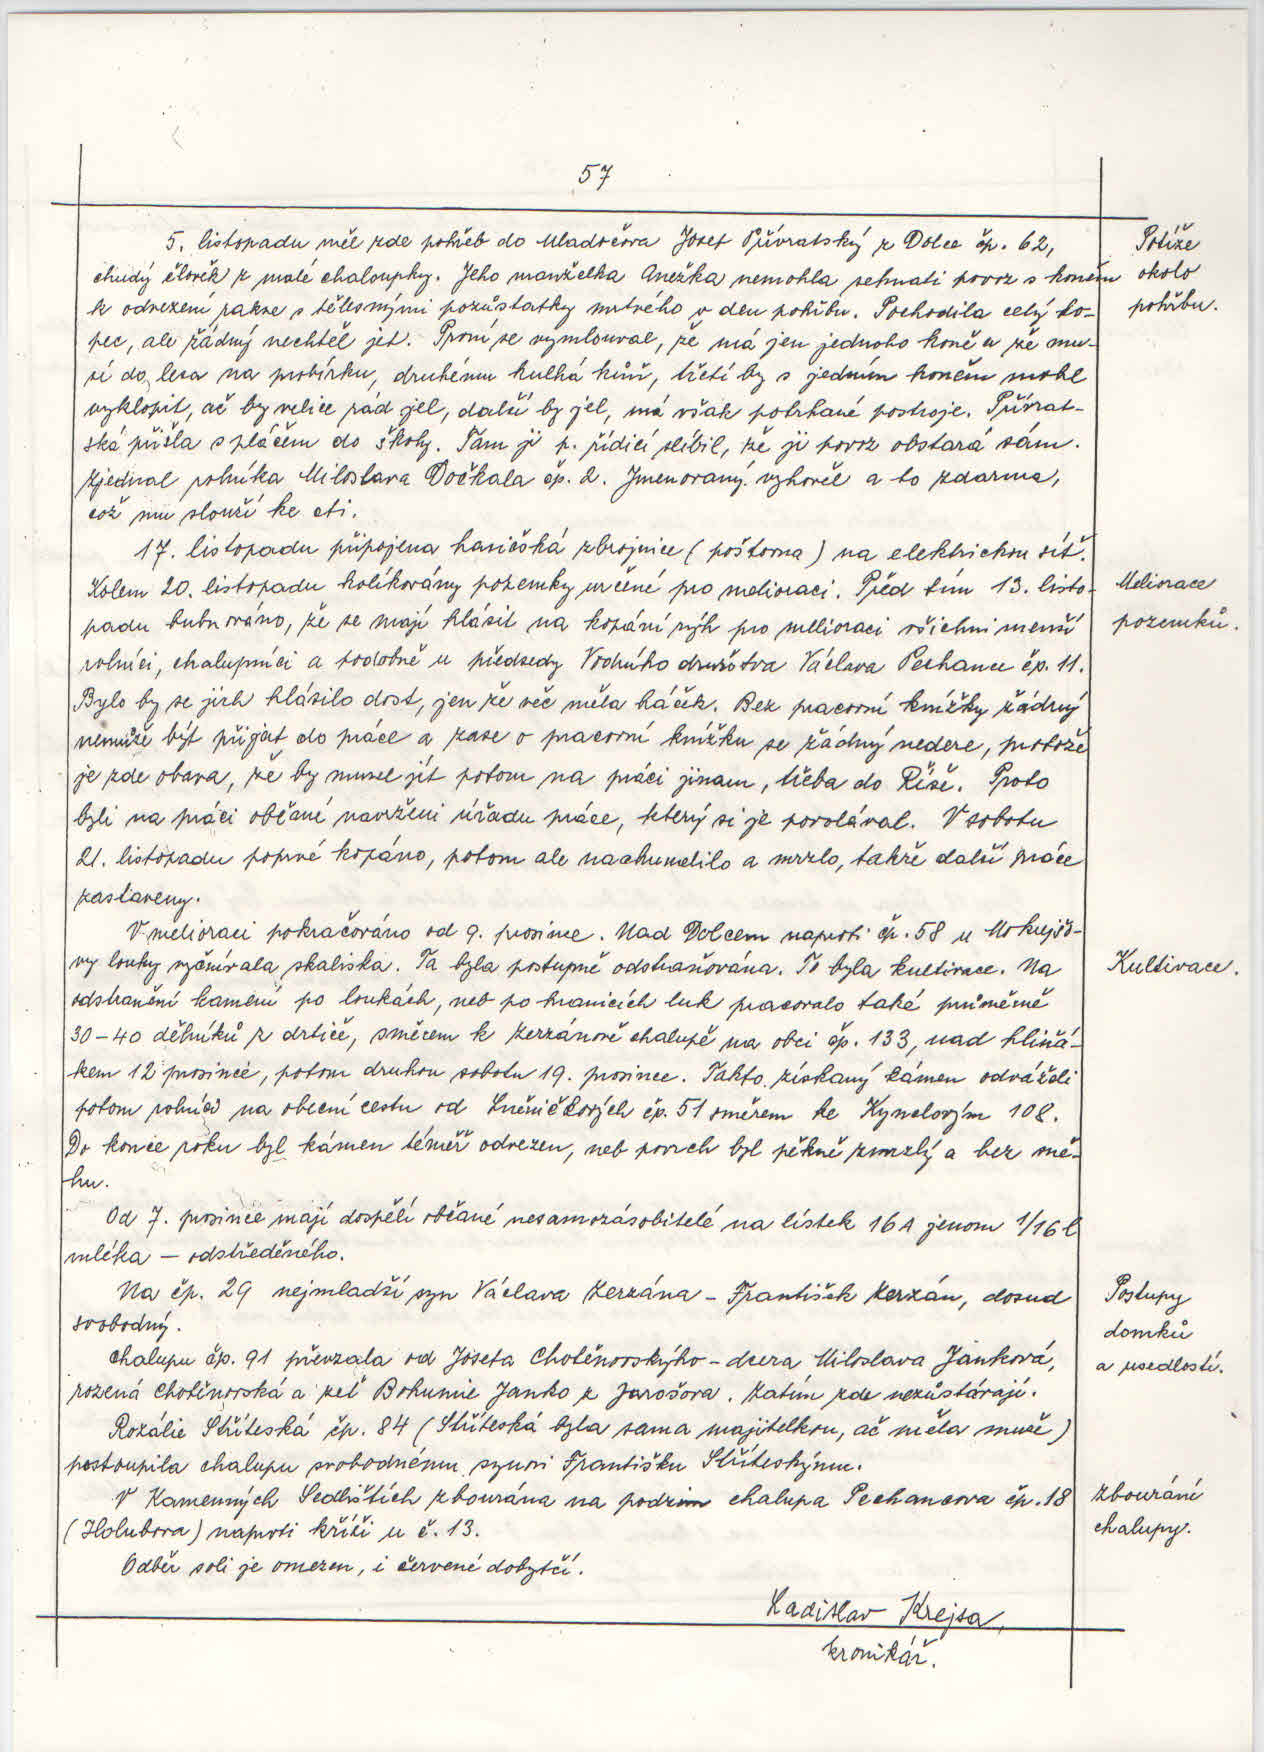 57
5. listopadu měl zde pohřeb do Mladočova Josef Přívratský z Dolce čp. 62,
Potíže
chudý člověk z malé chaloupky. Jeho manželka Anežka nemohla sehnati povoz s koněm
okolo
k odvezení rakve s tělesnými pozůstatky mrtvého v den pohřbu. Pochodila celý ko-
pohřbu.
pec, ale žádný nechtěl jet. První se vymlouval, že má jen jednoho koně a že mu-
sí do lesa na probírku, druhému kulhá kůň, třetí by s jedním koněm mohl
vyklopit, ač by velice rád jel, další by jel, má však potrhané postroje. Přívrat-
ská přišla s pláčem do školy. Tam jí p. řídící slíbil, že jí povoz obstará sám.
Zjednal rolníka Miloslava Dočkala čp. 2. Jmenovaný vyhověl a to zdarma,
což mu slouží ke cti.
17. listopadu připojena hasičská zbrojnice (poštovna) na elektrickou síť.
Kolem 20. listopadu kolíkovány pozemky určené pro melioraci. Před tím 13. listo-
Meliorace
padu bubnováno, že se mají hlásit na kopání rýh pro melioraci všichni menší
pozemků.
rolníci, chalupníci a podobně u předsedy Vodního družstva Václava Pechance čp. 11.
Bylo by se jich hlásilo dost, jen že věc měla háček. Bez pracovní knížky žádný
nemůže být přijat do práce a zase o pracovní knížku se žádný nedere, protože
je zde obava, že by musel jít potom na práci jinam, třeba do Říše. Proto
byli na práci občané navrženi úřadu práce, který si je povolával. V sobotu
21. listopadu poprvé kopáno, potom ale nachumelilo a mrzlo, takže další práce
zastaveny.
V melioraci pokračováno od 9. prosince. Nad Dolcem naproti čp. 58 u Mokrejšo-
vy louky vyčnívala skaliska. Ta byla postupně odstraňována. To byla kultivace. Na
Kultivace.
odstranění kamení po loukách, neb po hranicích luk pracovalo také průměrně
30-40 dělníků z drtiče, směrem k Zerzánově chalupě na obci čp. 133, nad hliňá-
kem 12 prosince, potom druhou sobotu 19. prosince. Takto získaný kámen odváželi
potom rolníci na obecní cestu od Sněničkových čp. 51 směrem ke Kynclovým 108.
Do konce roku byl kámen téměř odvezen, neb povrch byl pěkně zmrzlý a bez sně-
hu.
Od 7. prosince mají dospělí občané nesamozásobitelé na lístek 16A jenom 1/16 l
mléka – odstředěného.
Na čp. 29 nejmladší syn Václava Zerzána – František Zerzán, dosud
Postupy
svobodný.
domků
Chalupu čp. 91 převzala od Josefa Chotěnovskýho – dcera Miloslava Janková,
a usedlostí.
rozená Chotěnovská a zeť Bohumír Janko z Jarošova. Zatím zde nezůstávají.
Rozálie Stříteská čp. 84 (Stříteská byla sama majitelkou, ač měla muže)
postoupila chalupu svobodnému synovi Františku Stříteskýmu.
V Kamenných Sedlištích zbourána na podzim chalupa Pechancova čp. 18
zbourání
(Holubova) naproti kříži u č. 13.
chalupy.
Odběr soli je omezen, i červené dobytčí.
Ladislav Krejsa,
kronikář.